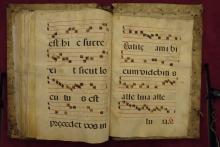 est hi c surre
xi t sicut lo
cu tu s est
precedet vos in
Galile am i bi
eum videbiti s
alle luia alle
lu ia